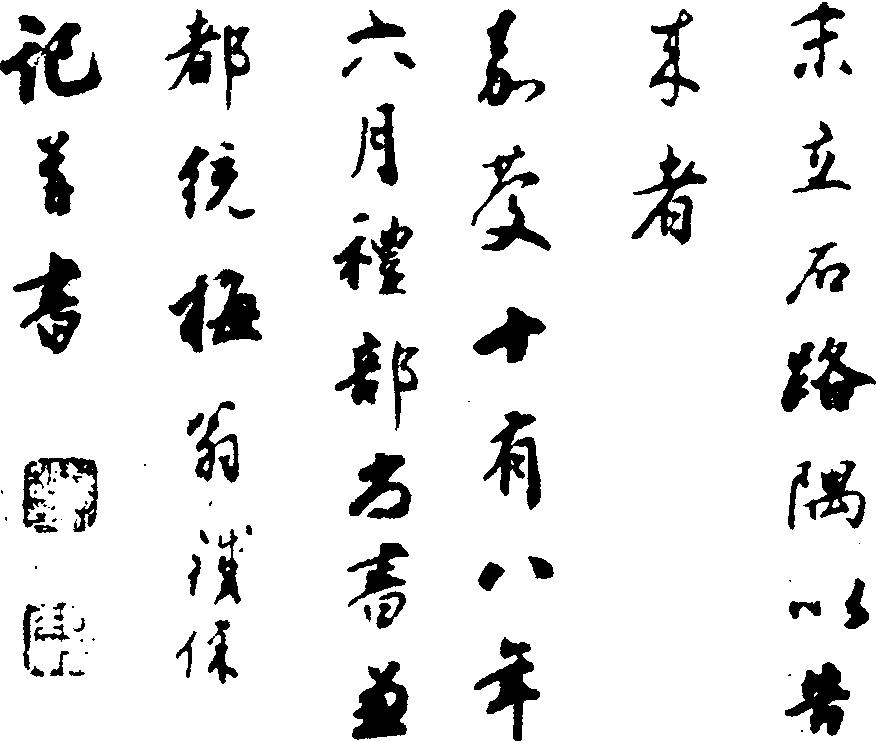 末立石路隅以告
来者
嘉慶十有八年
六月禮部尚書兼
都統梅翁鐵保
記并書